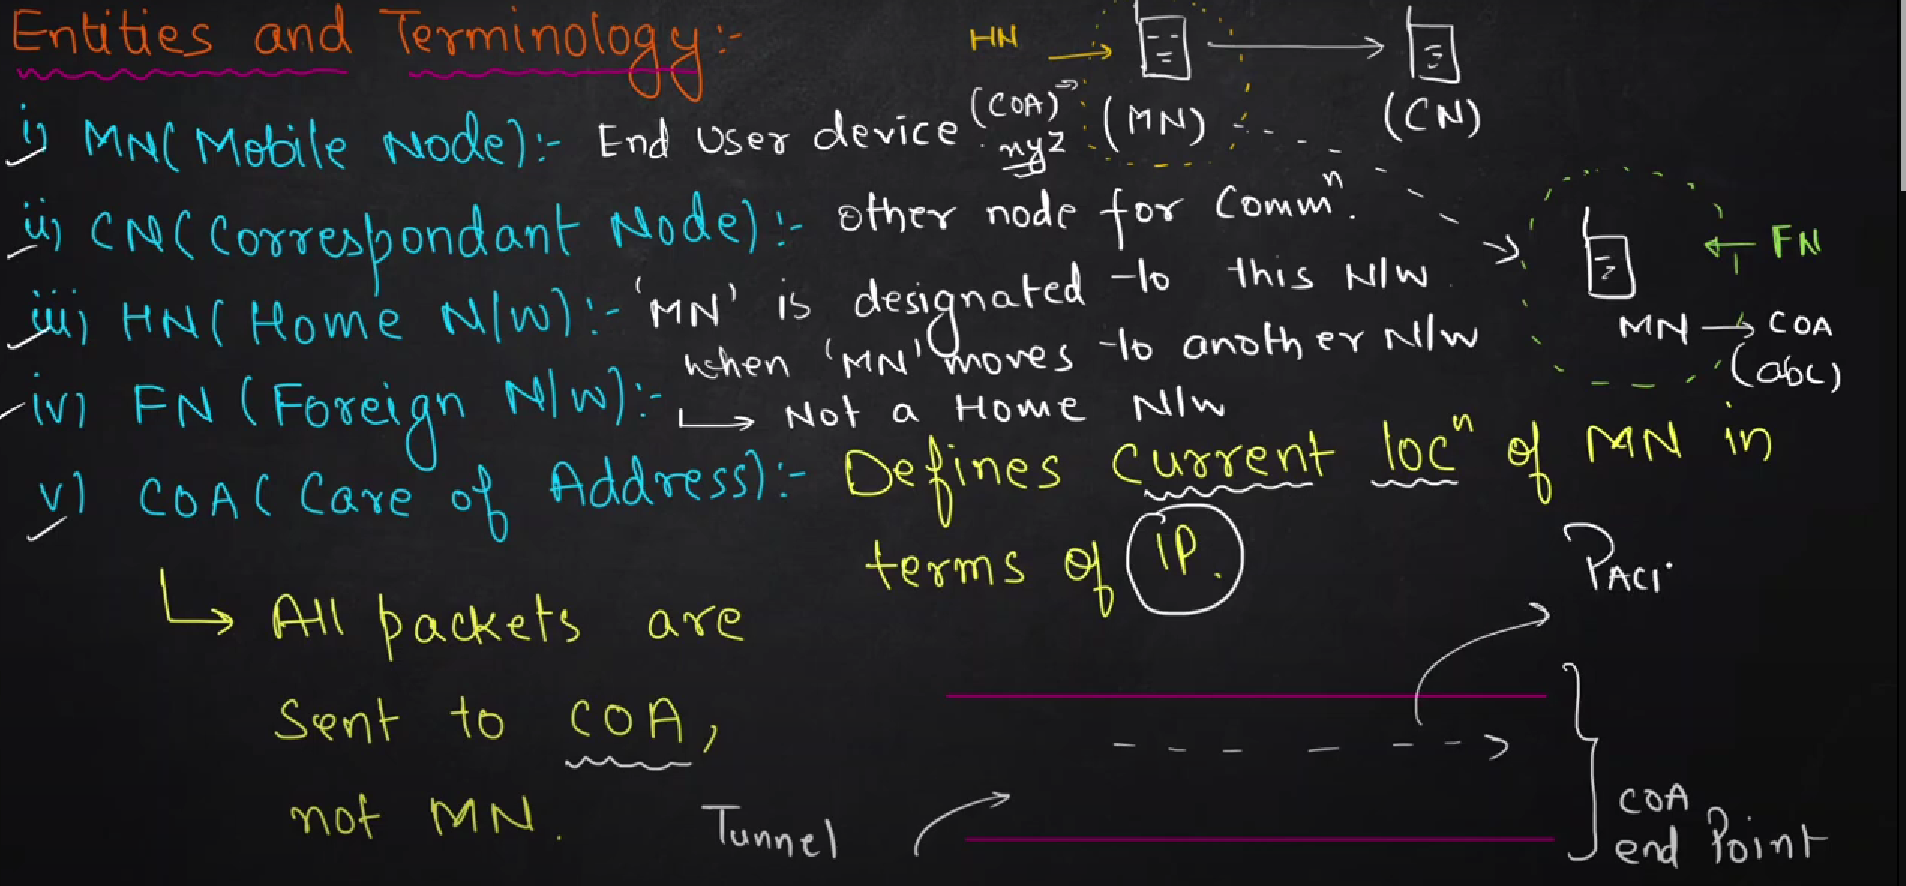 Entities and Terminology:-
HN
(COA)
xyz
(MN)
(CN)
i) MN(Mobile Node):- End User device
ii) CN(Correspondant Node):- other node for Commⁿ.
FN
iii) HN(Home N/W):- 'MN' is designated to this N/W
MN → COA
(abc)
when 'MN' moves to another N/W
iv) FN (Foreign N/W):-
↳ Not a Home N/W
v) COA( Care of Address):- Defines current locⁿ of MN in
terms of IP.
↳ All packets are
Sent to COA,
not MN.
PACI
Tunnel
COA
end Point